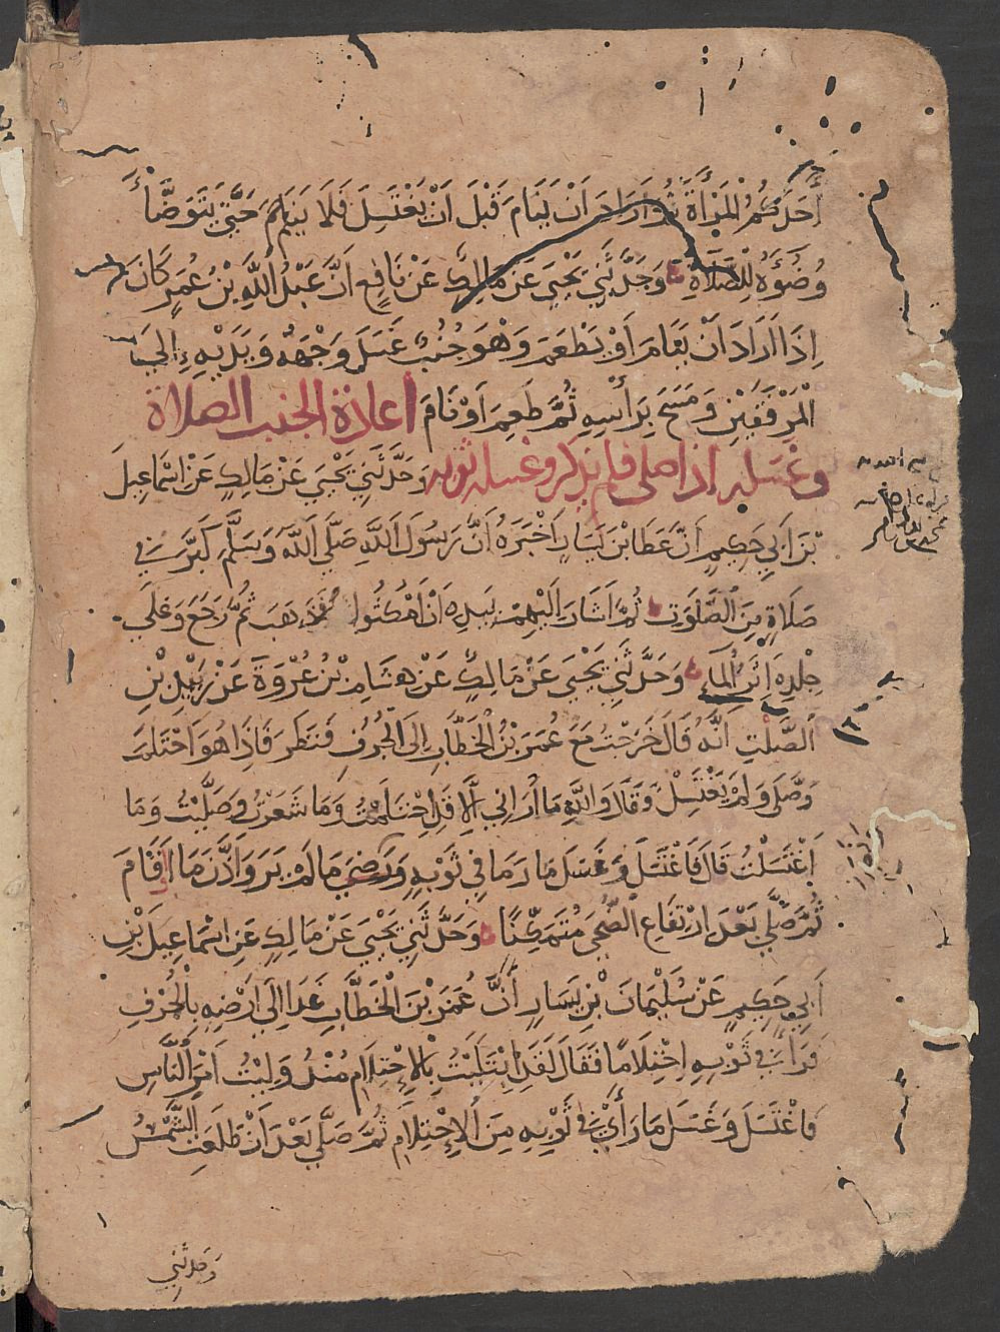 أَحَدُكُمُ الْمَرْأَةَ ثُمَّ أَرَادَ أَنْ يَنَامَ قَبْلَ أَنْ يَغْتَسِلَ فَلَا يَنَامُ حَتَّى يَتَوَضَّأَ
وُضُوءَهُ لِلصَّلَاةِ وَحَدَّثَنِي يَحْيَى عَنْ مَالِكٍ عَنْ نَافِعٍ أَنَّ عَبْدَ اللَّهِ بْنَ عُمَرَ كَانَ
إِذَا أَرَادَ أَنْ يَنَامَ أَوْ يَطْعَمَ وَهُوَ جُنُبٌ غَسَلَ وَجْهَهُ وَيَدَيْهِ إِلَى
الْمِرْفَقَيْنِ وَمَسَحَ بِرَأْسِهِ ثُمَّ طَعِمَ أَوْ نَامَ اعادة الجنب الصلاة
وغسله اذا صلى فلم يذكر وغسله ثوبه وَحَدَّثَنِي يَحْيَى عَنْ مَالِكٍ عَنْ اسْمَاعِيلَ
بْنِ أَبِي حَكِيمٍ أَنَّ عَطَا بْنَ يَسَارٍ أَخْبَرَهُ أَنَّ رَسُولَ اللَّهِ صَلَّى اللَّهُ وَسَلَّمَ كَبَّرَ فِي
صَلَاةٍ مِنَ الصَّلَوَتِ ثُمَّ أَشَارَ إِلَيْهِمْ بِيَدِهِ أَنْ امْكُثُوا فَذَهَبَ ثُمَّ رَجَعَ وَعَلَى
جِلْدِهِ أَثَرُ الْمَاءِ وَحَدَّثَنِي يَحْيَى عَنْ مَالِكٍ عَنْ هِشَامِ بْنِ عُرْوَةَ عَنْ زُيَيْدِ بْنِ
الصَّلْتِ أَنَّهُ قَالَ خَرَجْتُ مَعَ عُمَرَ بْنِ الْخَطَّابِ إِلَى الْجُرُفِ فَنَظَرَ فَإِذَا هُوَ احْتَلَمَ
وَصَلَّى وَلَمْ يَغْتَسِلْ وَقَالَ وَاللَّهِ مَا أُرَانِي إِلَّا قَدِ احْتَلَمْتُ وَمَا شَعَرْتُ وَصَلَّيْتُ وَمَا
اغْتَسَلْتُ قَالَ فَاغْتَسَلَ وَغَسَلَ مَا رَءَا فِي ثَوْبِهِ وَنَضَحَ مَا لَمْ يَرَ وَأَذَّنَ مَا أَقَامَ
ثُمَّ صَلَّى بَعْدَ ارْتِفَاعِ الضُّحَى مُتَمَكِّنًا وَحَدَّثَنِي يَحْيَى عَنْ مَالِكٍ عَنِ اسْمَاعِيلَ بْنِ
أَبِي حَكِيمٍ عَنْ سُلَيْمَانَ بْنِ يَسَارٍ أَنَّ عُمَرَ بْنَ الْخَطَّابِ غَدَا إِلَى أَرْضِهِ بِالْجُرُفِ
فَرَأَى فِي ثَوْبِهِ احْتِلَامًا فَقَالَ لَقَدِ ابْتُلِيتُ بِالْاحْتِلَامِ مُنْذُ وَلِيْتُ أَمْرَ النَّاسِ
فَاغْتَسَلَ وَغَسَلَ مَا رَأَى فِي ثَوْبِهِ مِنَ الْاحْتِلَامِ ثُمَّ صَلَّى بَعْدَ أَنْ طَلَعَتِ الشَّمْسُ
وَحَدَّثَنِي